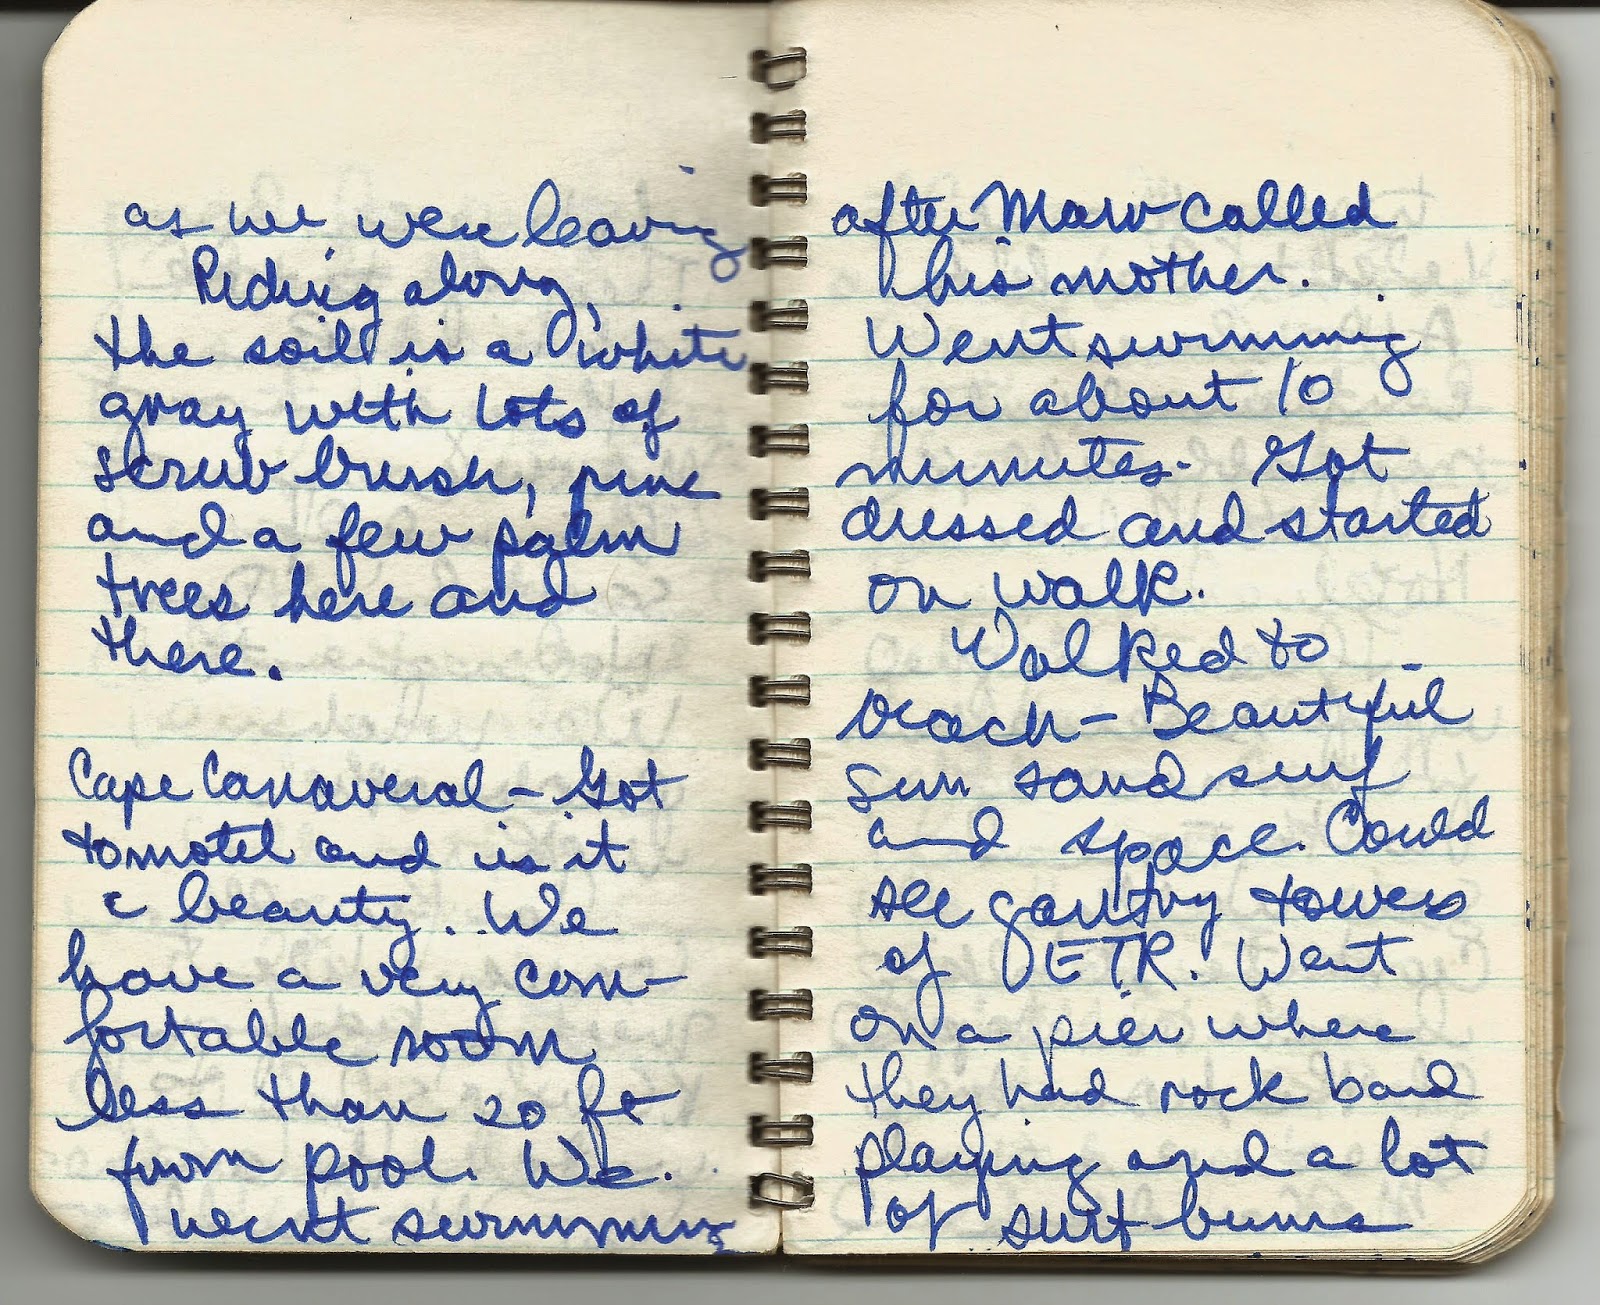 as we were leaving
Riding along,
the soil is a white
gray with lots of
scrub brush, pine
and a few palm
trees here and
there.
Cape Canaveral - Got
to motel and is it
a beauty. We
have a very com-
fortable room
less than 20 ft
from pool. We
went swimming
after Marv called
his mother.
Went swimming
for about 10
minutes. Got
dressed and started
on walk.
Walked to
beach - Beautiful
sun sand surf
and space. Could
see gantry towers
of ETR. Went
on a pier where
they had rock band
playing and a lot
of surf bums